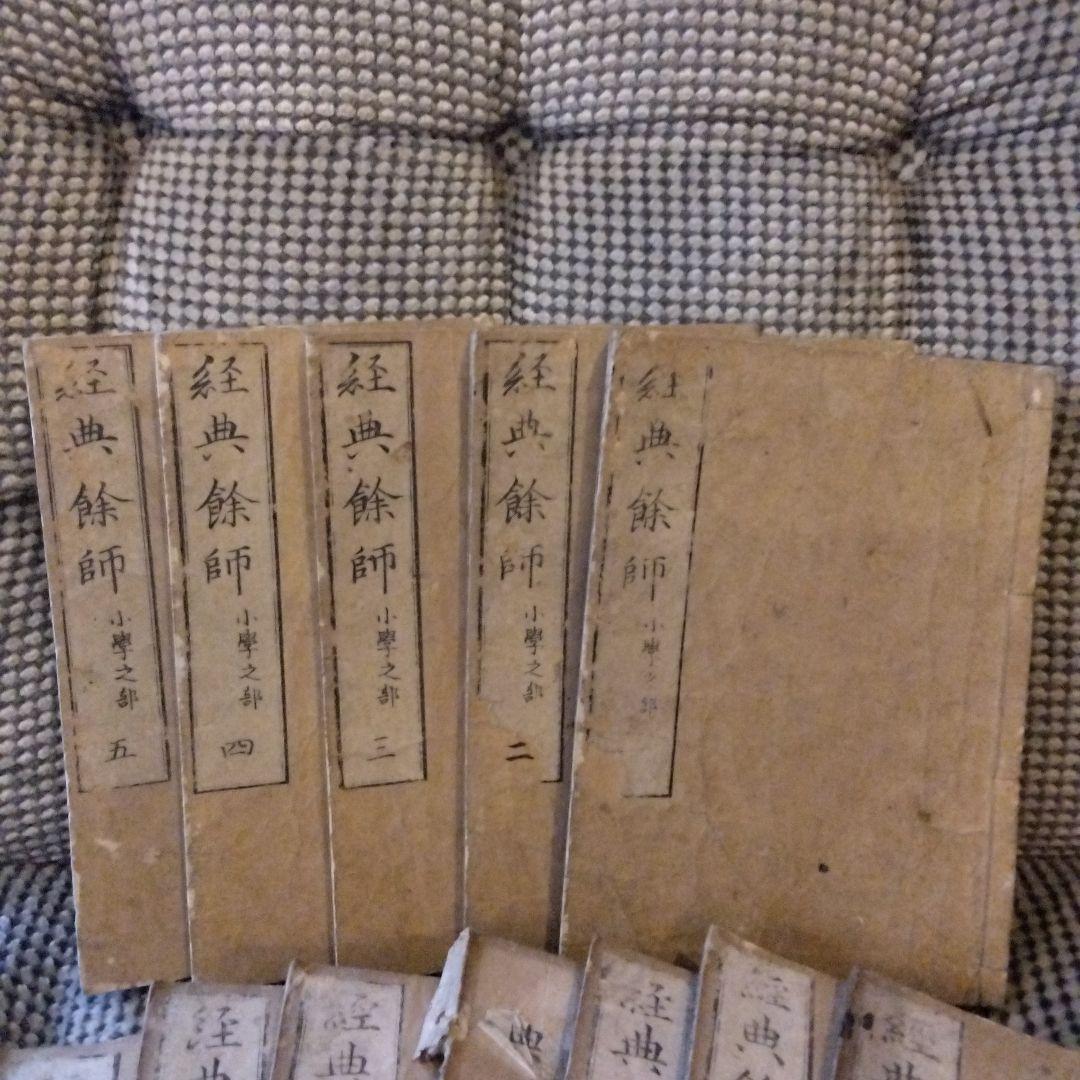 経典餘師 小學之部
経典餘師 小學之部 二
経典餘師 小學之部 三
経典餘師 小學之部 四
経典餘師 小學之部 五
經典
經典
経典
典
経典
经典